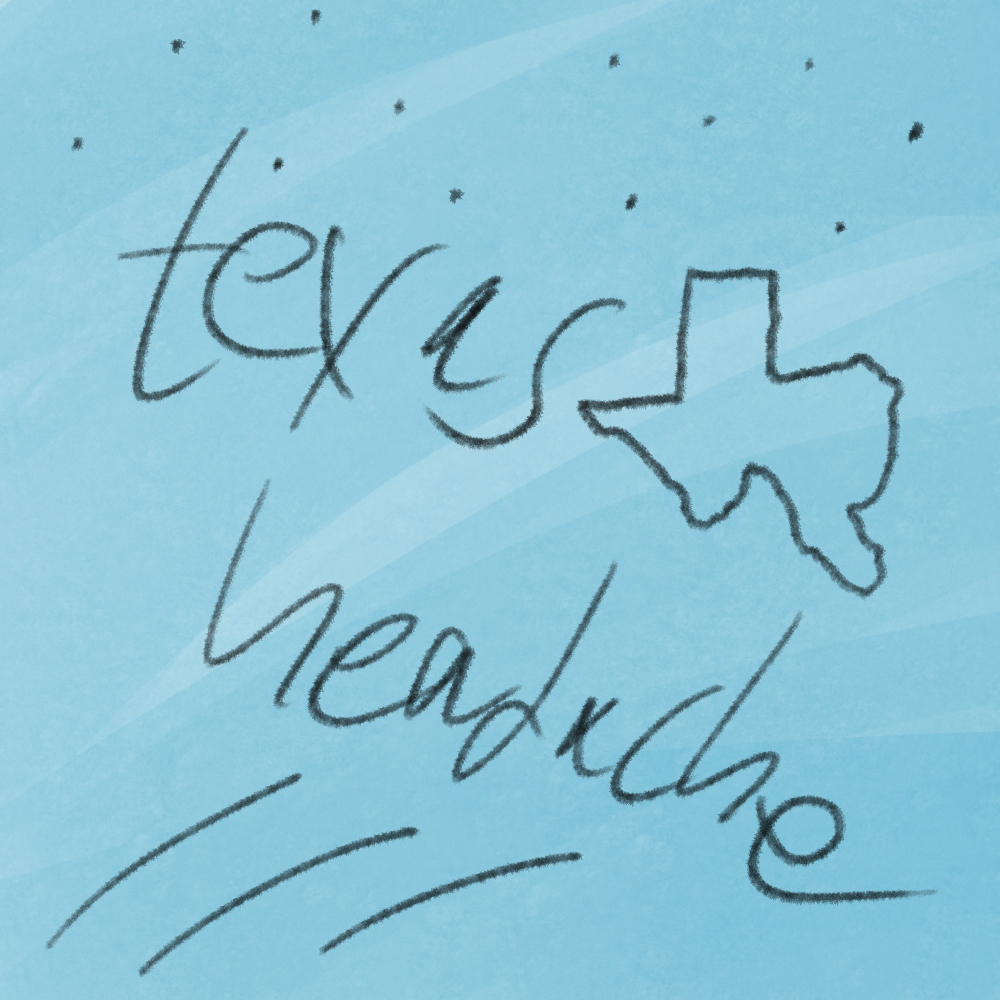 texas
headache